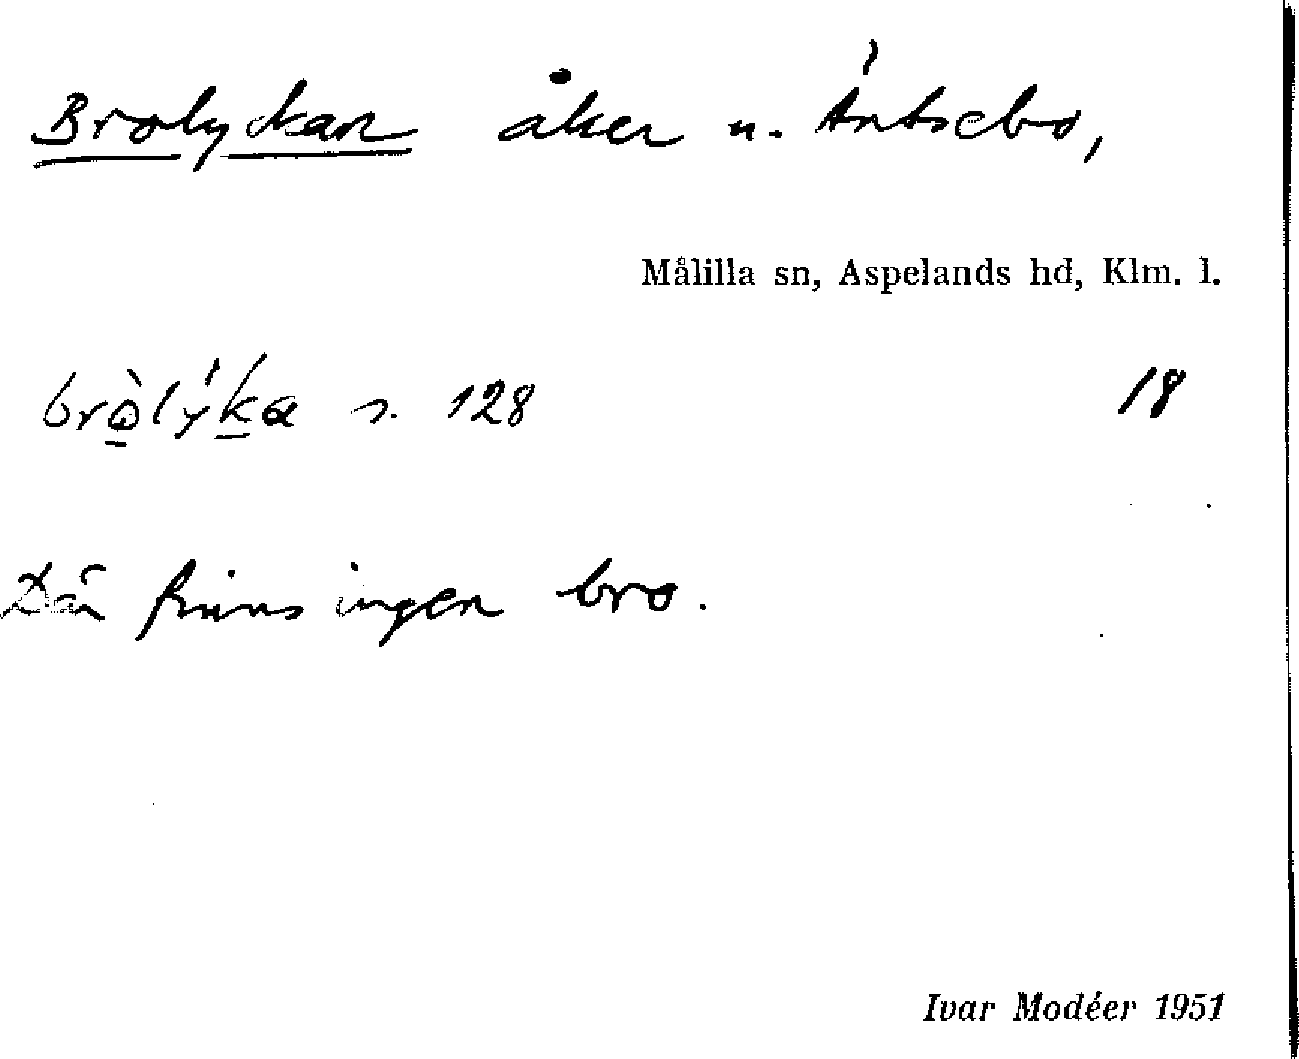 Brolyckan åker u. Äntsebo,
Målilla sn, Aspelands hd, Klm. l.
bròlýka s. 128 18
Där finns ingen bro.
Ivar Modéer 1951